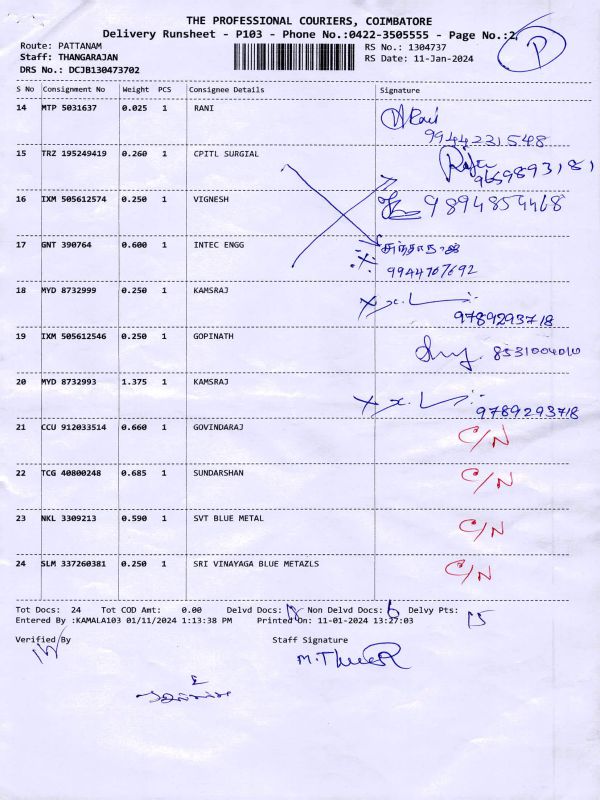 THE PROFESSIONAL COURIERS, COIMBATORE
Delivery Runsheet - P103 - Phone No.:0422-3505555 - Page No.:2
P
Route: PATTANAM
RS No.: 1304737
Staff: THANGARAJAN
RS Date: 11-Jan-2024
DRS No.: DCJB130473702
S No Consignment No Weight PCS Consignee Details Signature
14 MTP 5031637 0.025 1 RANI
9944231548
15 TRZ 195249419 0.260 1 CPITL SURGIAL
9659893181
16 IXM 505612574 0.250 1 VIGNESH 9894854468
17 GNT 390764 0.600 1 INTEC ENGG
9944707692
18 MYD 8732999 0.250 1 KAMSRAJ
9789293718
19 IXM 505612546 0.250 1 GOPINATH 8531004010
20 MYD 8732993 1.375 1 KAMSRAJ
9789293718
21 CCU 912033514 0.660 1 GOVINDARAJ C/N
22 TCG 40800248 0.685 1 SUNDARSHAN C/N
23 NKL 3309213 0.590 1 SVT BLUE METAL C/N
24 SLM 337260381 0.250 1 SRI VINAYAGA BLUE METAZLS C/N
Tot Docs: 24 Tot COD Amt: 0.00 Delvd Docs: 18 Non Delvd Docs: 6 Delvy Pts: 15
Entered By :KAMALA103 01/11/2024 1:13:38 PM Printed On: 11-01-2024 13:27:03
Verified By Staff Signature